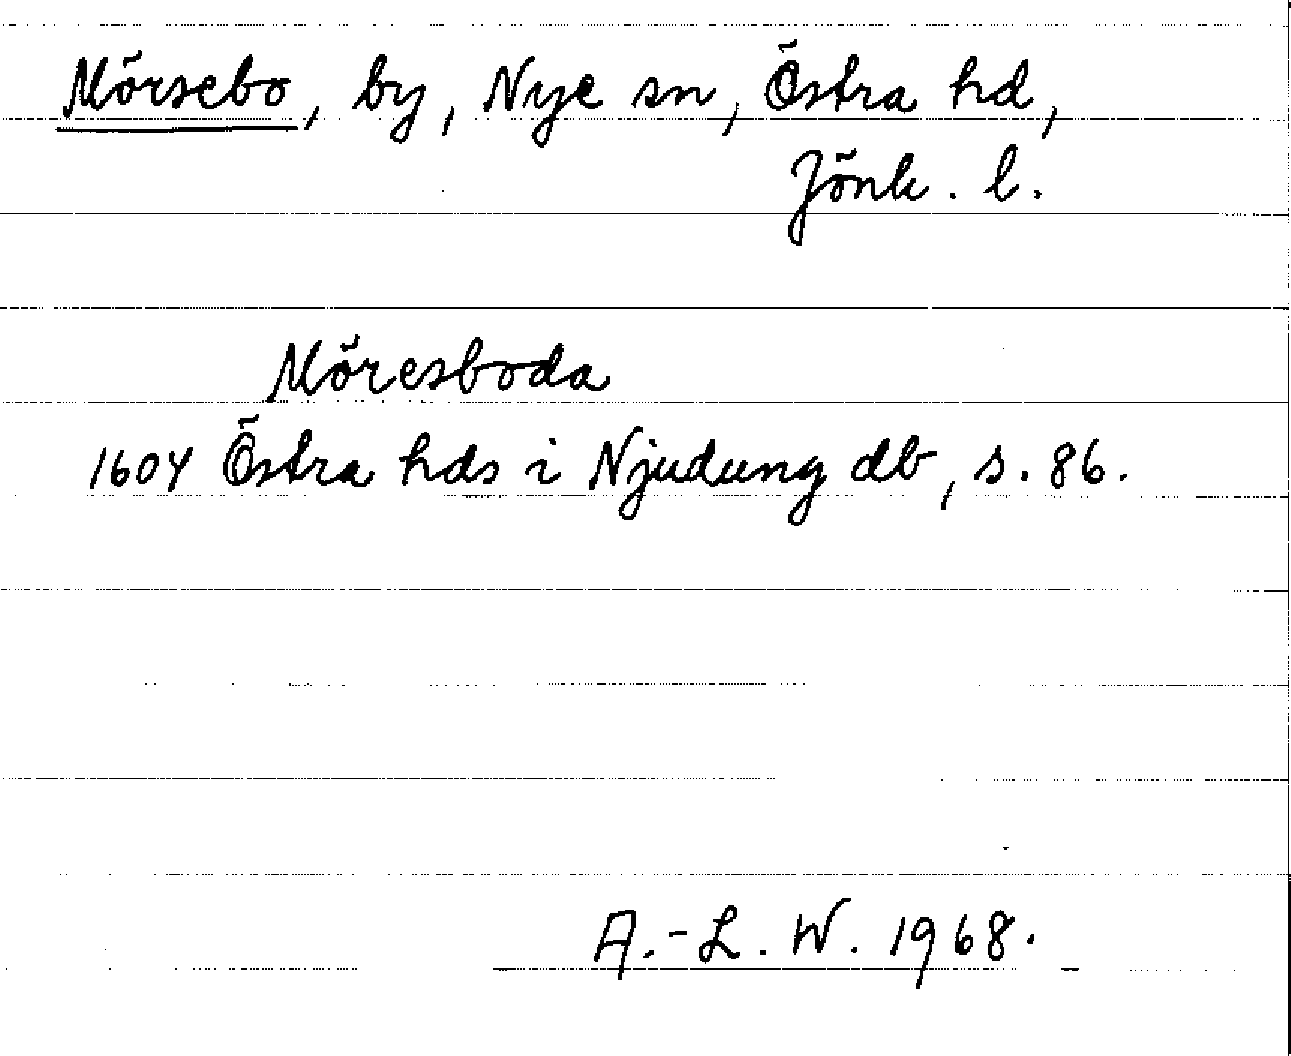 Mörsebo, by, Nye sn, Östra hd,
Jönk. l.
Möresboda
1604 Östra hds i Njudung db, s. 86.
A.-L. W. 1968.